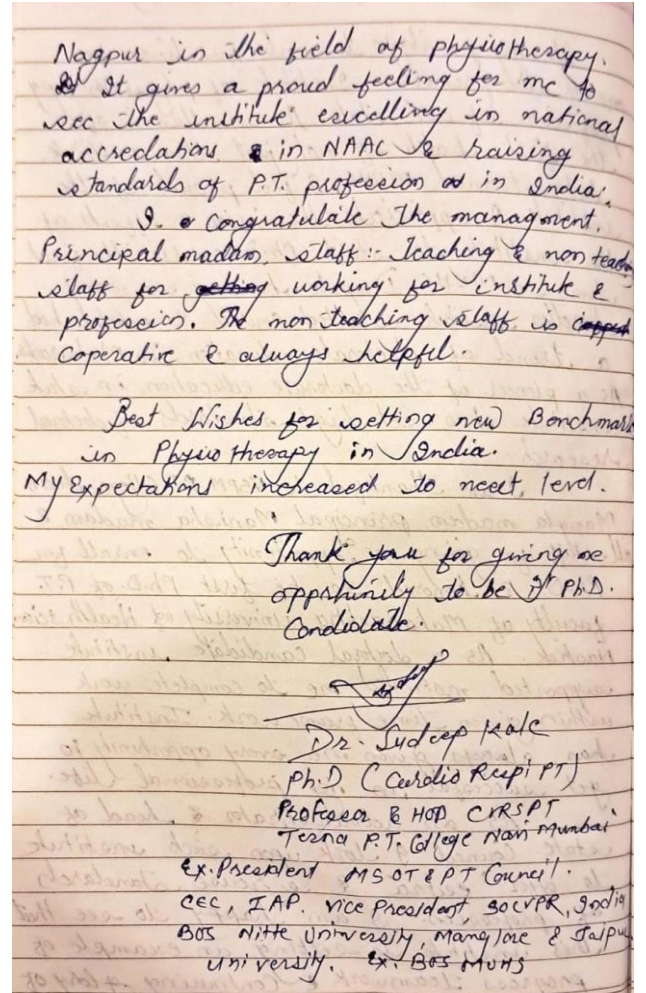 Nagpur in the field of physiotherapy.
It gives a proud feeling for me to
see the institute excelling in national
accredations in NAAC & raising
standards of P.T. profession in India.
I congratulate the managment,
Principal madam, staff :- Teaching & non teaching
staff for working for institute &
profession. The non teaching staff is
Coperative & always helpful.
Best Wishes for setting new Benchmark
in Physiotherapy in India.
My Expectations increased to next level.
Thank you for giving me
opportunity to be Ist Ph.D.
Candidate.
Dr. Sudeep Kale
Ph.D (Cardio Respi PT)
Professor & HOD CVRSPT
Terna P.T. College Navi Mumbai
Ex. President MSOT & PT Council.
CEC, IAP. Vice President, SOCVPR, India
BOS Nitte University, Manglore & Jaipur
University. Ex. BOS MUHS